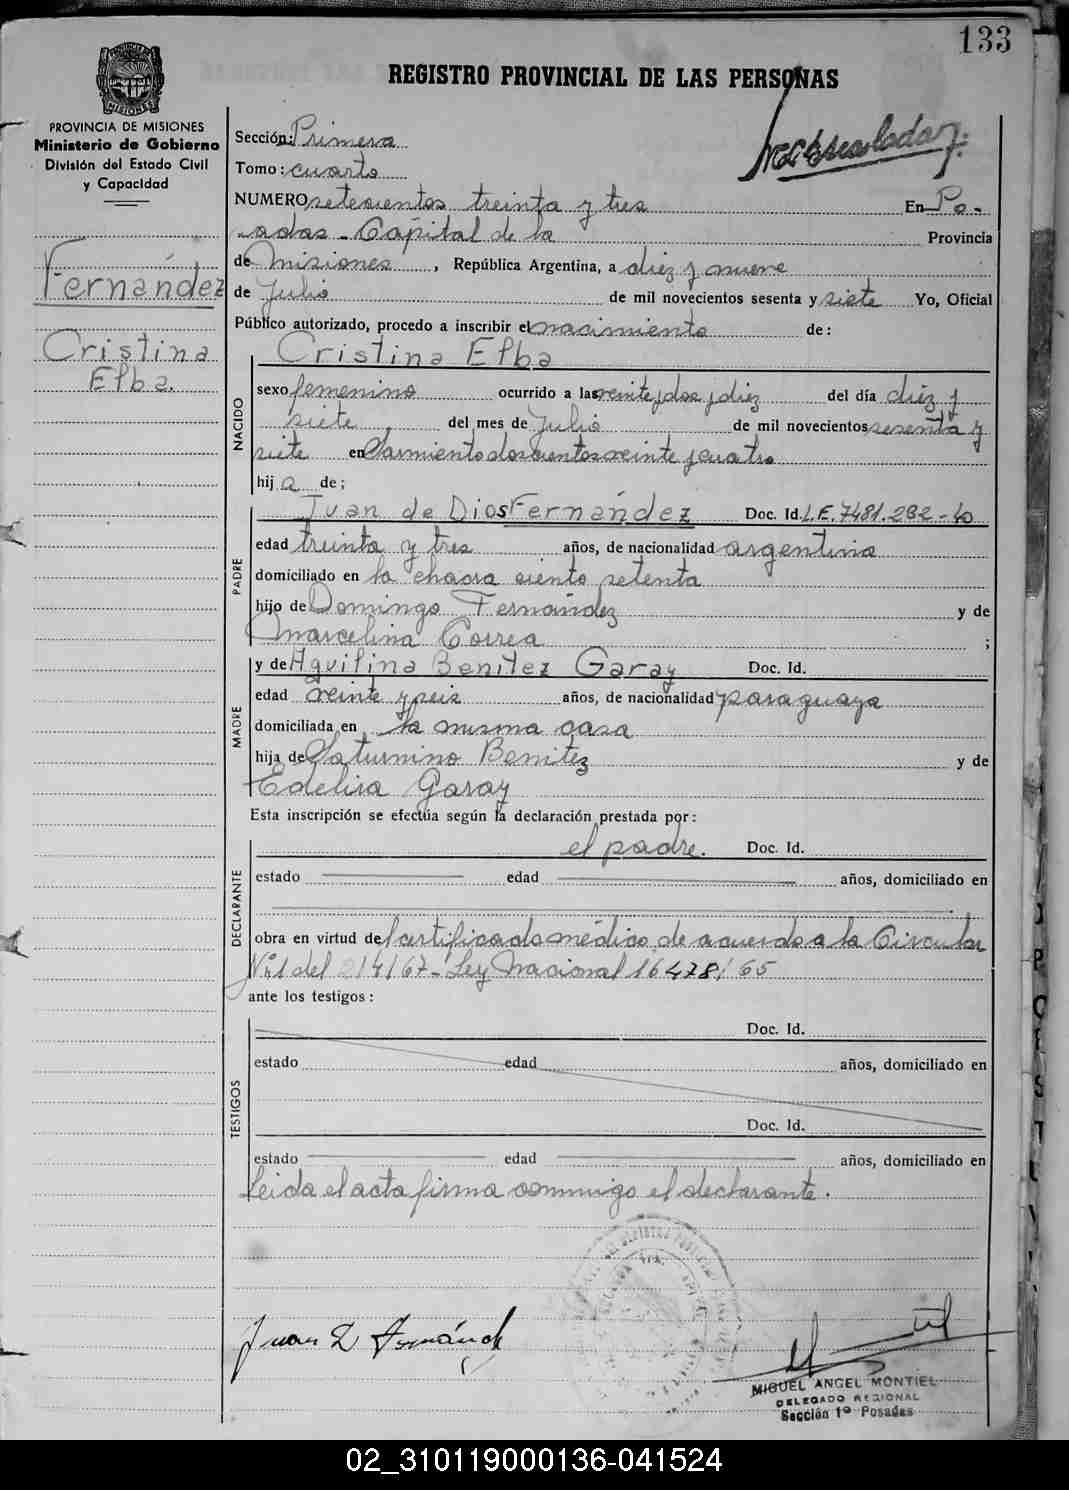 133
REGISTRO PROVINCIAL DE LAS PERSONAS
PROVINCIA DE MISIONES
Ministerio de Gobierno
División del Estado Civil
y Capacidad
Fernández
Cristina
Elba.
Sección: Primera
Tomo: cuarto
NUMERO setecientos treinta y tres En Po-
sadas - Capital de la Provincia
de Misiones, República Argentina, a diez y nueve
de Julio de mil novecientos sesenta y siete Yo, Oficial
Público autorizado, procedo a inscribir el nacimiento de:
NACIDO
Cristina Elba
sexo femenino ocurrido a las veinte y dos y diez del día diéz y
siete del mes de Julio de mil novecientos sesenta y
siete en Sarmiento doscientos veinte y cuatro
hija de;
PADRE
Juan de Dios Fernández Doc. Id. L.E. 7481.292
edad treinta y tres años, de nacionalidad argentina
domiciliado en la chacra ciento setenta
hijo de Domingo Fernández y de
Marcelina Correa ;
MADRE
y de Aquilina Benitez Garay Doc. Id.
edad veinte y seis años, de nacionalidad paraguaya
domiciliada en la misma casa
hija de Saturnino Benitez y de
Edelira Garay
Esta inscripción se efectúa según la declaración prestada por:
DECLARANTE
el padre. Doc. Id.
estado edad años, domiciliado en
obra en virtud del certificado médico de acuerdo a la Circular
Nº1 del 21/4/67 - Ley Nacional 16478/65
ante los testigos:
TESTIGOS
Doc. Id.
estado edad años, domiciliado en
Doc. Id.
estado edad años, domiciliado en
Leida el acta firma conmigo el declarante.
Juan D Fernández
MIGUEL ANGEL MONTIEL
DELEGADO REGIONAL
Sección 1º Posadas
02_310119000136-041524